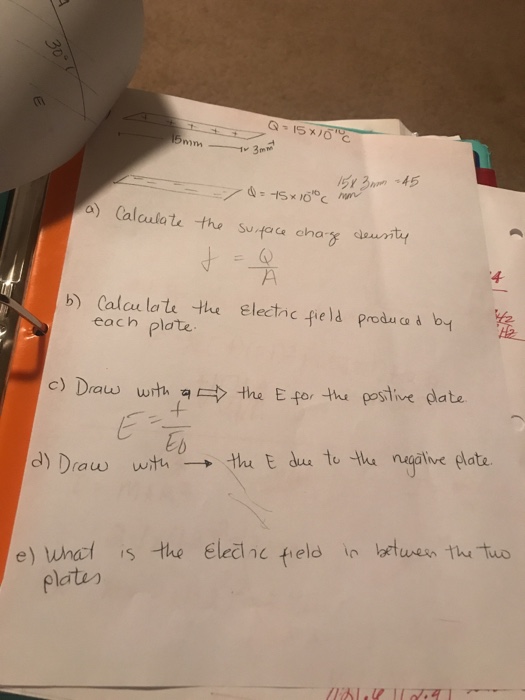 30°
E
Q = 15 x 10⁻¹⁰ C
+ + + + +
15mm
3mm
15x 3mm = 45
Q = -15 x 10⁻¹⁰ C mm
a) Calculate the surface charge density
= Q
A
b) Calculate the Electric field produced by
each plate.
c) Draw with a ⇨ the E for the positive plate.
E =
E0
d) Draw with → the E due to the negative plate.
e) What is the Electric field in between the two
plates